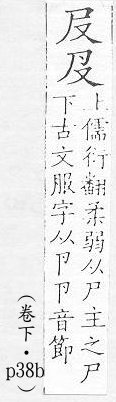 㞋𠬝
上儒衍翻柔弱从尸主之尸
下古文服字从卩卩音節
（卷下・p38b）